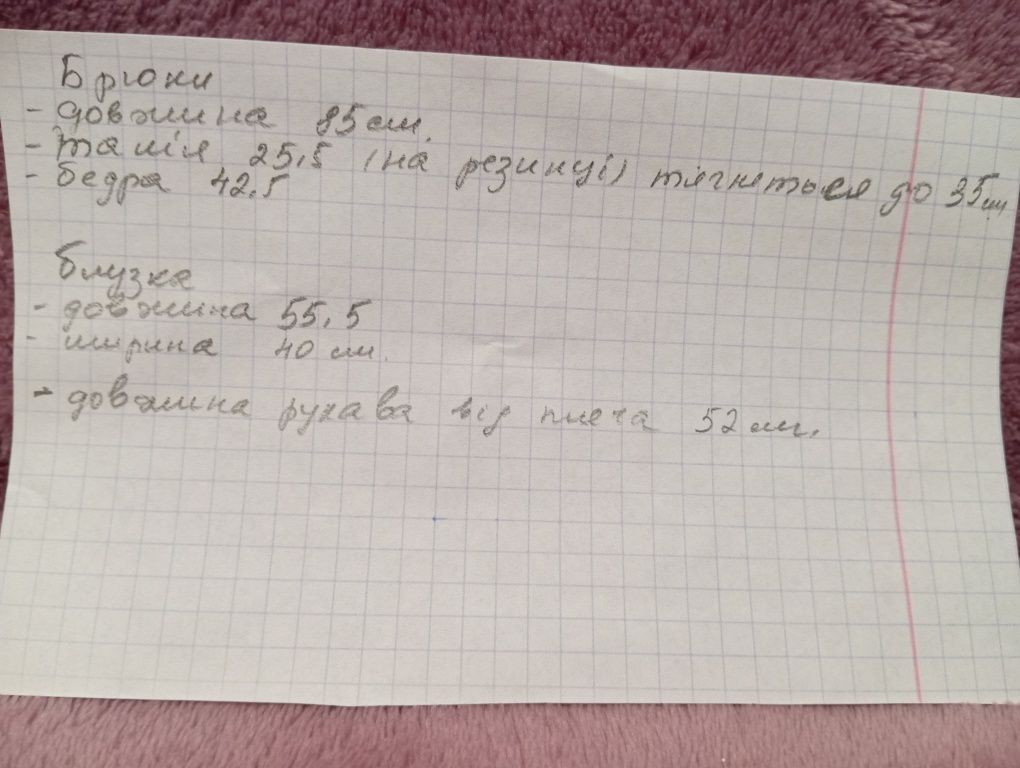 Брюки
- довжина 95 см.
- талія 25,5 (на резинці) тягнеться до 35 см
- бедра 42,5
блузка
- довжина 55,5
- ширина 40 см.
- довжина рукава від плеча 52 см.